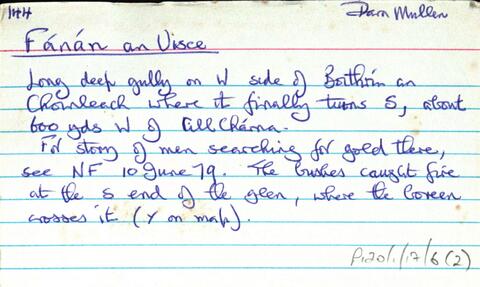 144
Dara Mullen
Fánán an Uisce
Long deep gully on W side of Boithrín an
Chomleach where it finally turns S, about
600 yds W of Cill Charna.
For story of men searching for gold there,
see NF 10 June 79. The bushes caught fire
at the S end of the glen, where the boreen
crosses it (Y on map).
P120/1/17/6(2)